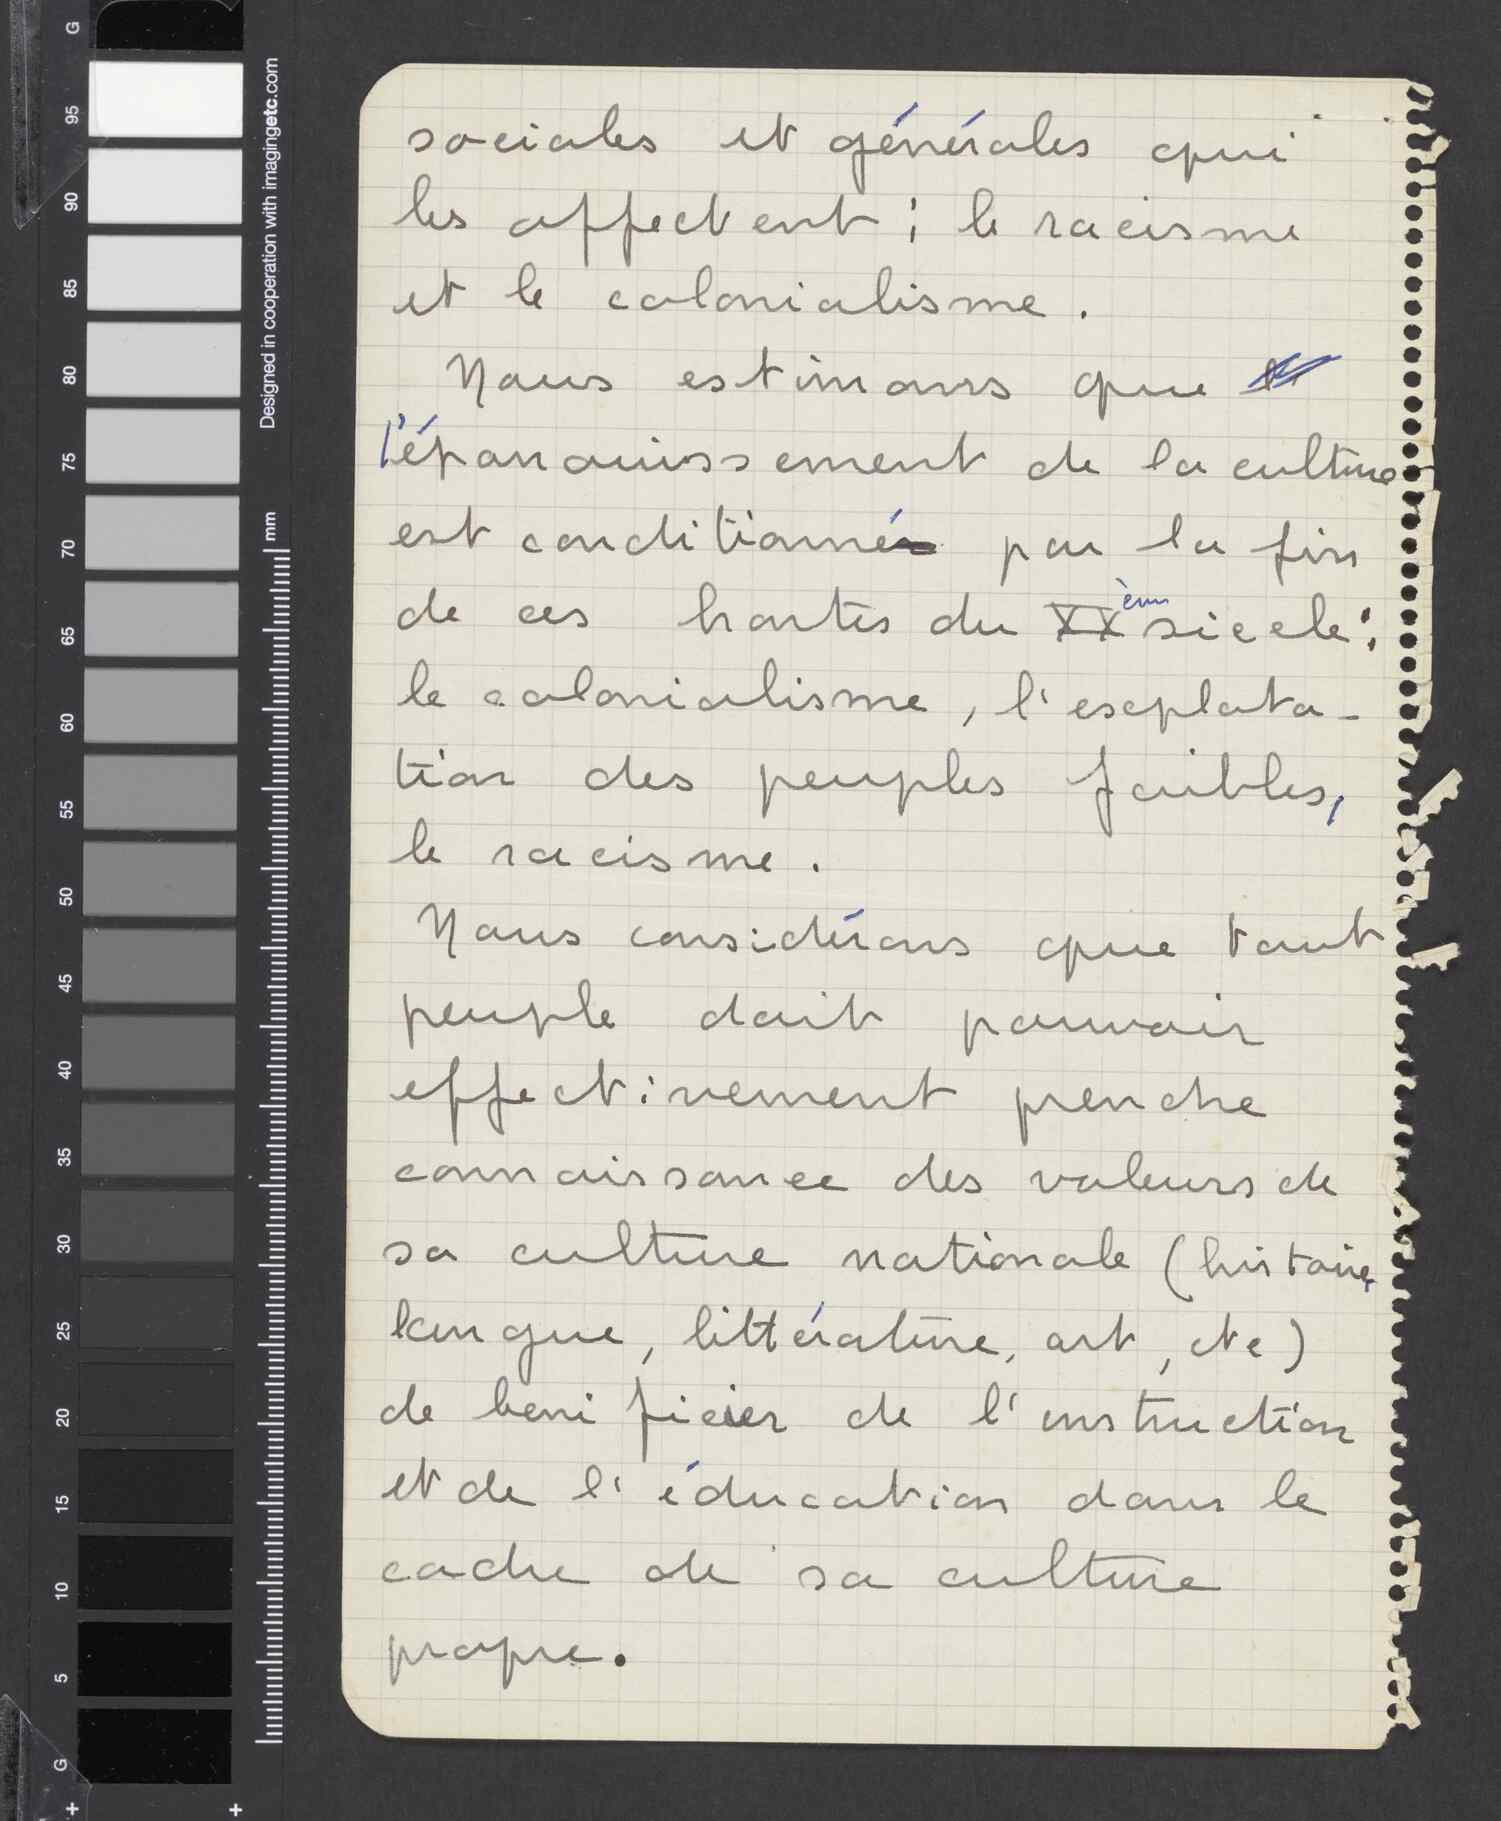 sociales et générales qui
les affectent ; le racisme
et le colonialisme.
Nous estimons que
l'épanouissement de la culture
est conditionné par la fin
de ces hontes du XXème siecle :
le colonialisme, l'esplota-
tion des peuples faibles,
le racisme.
Nous considérons que tout
peuple doit pouvoir
effectivement prendre
connaissance des valeurs de
sa culture nationale (histoire,
langue, littérature, art, etc)
de beneficier de l'instruction
et de l'éducation dans le
cadre de sa culture
propre.
G
95
90
85
80
75
70
65
60
55
50
45
40
35
30
25
20
15
10
5
G
Designed in cooperation with imagingetc.com
mm